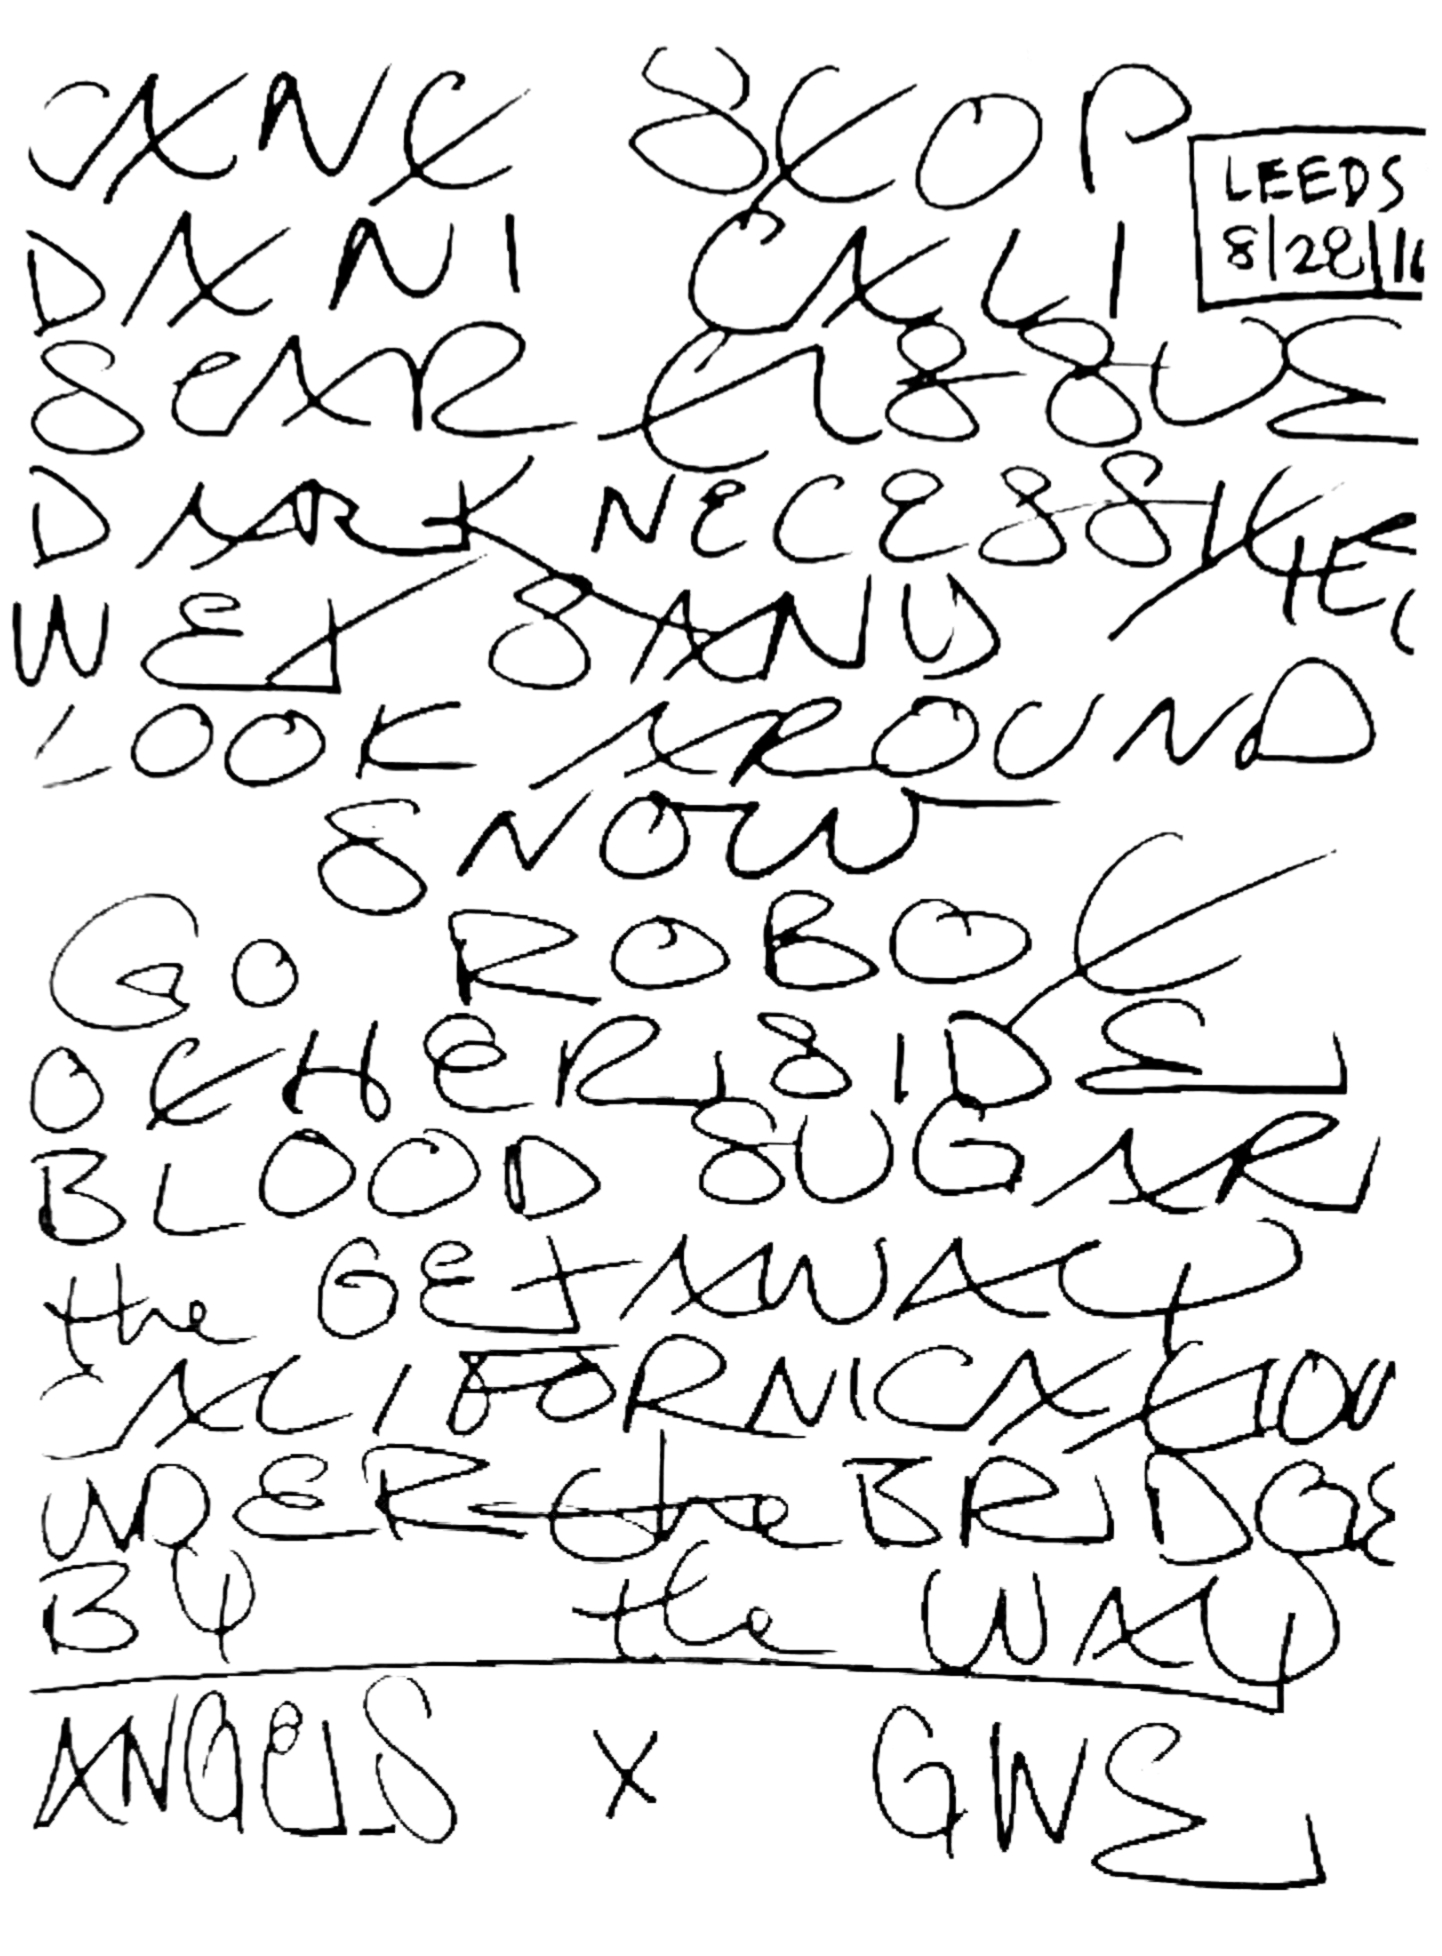 CANT STOP
LEEDS
8/28/16
DANI CALI
SCAR TISSUE
DARK NECESSITIES
WET SAND
LOOK AROUND
SNOW
GO ROBOT
OTHERSIDE
BLOOD SUGAR
the GETAWAY
CALIFORNICATION
UNDER the BRIDGE
BY the WAY
ANGELS X GIVE